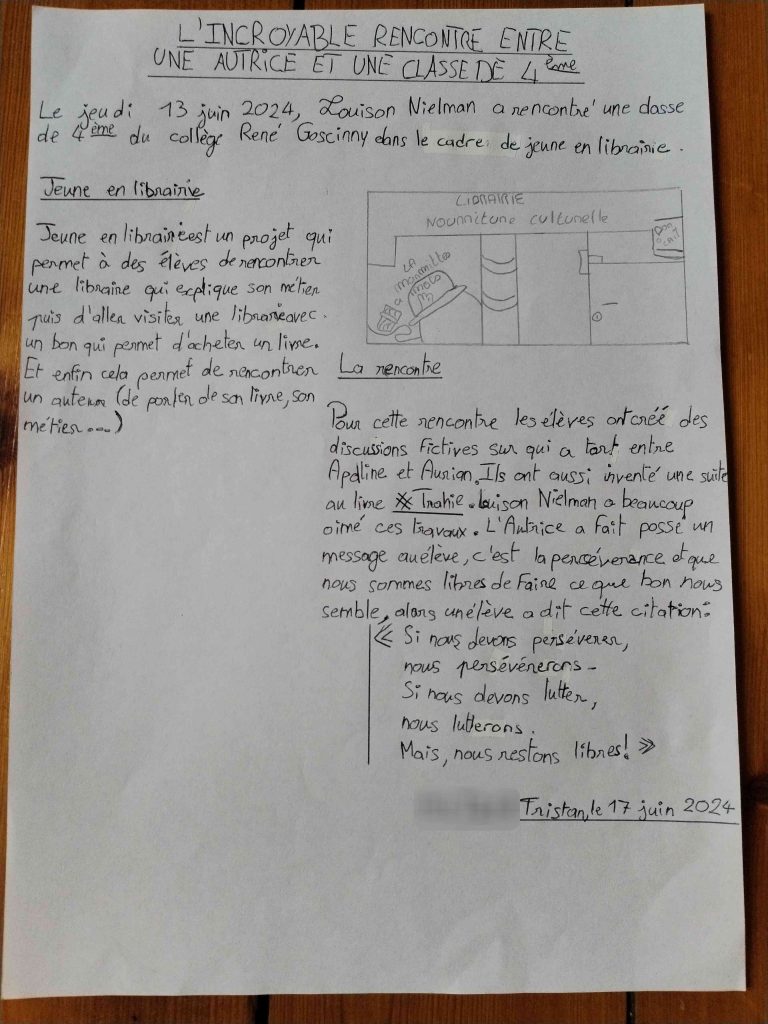 L'INCROYABLE RENCONTRE ENTRE
UNE AUTRICE ET UNE CLASSE DE 4ème
Le jeudi 13 juin 2024, Louison Nielman a rencontré une classe
de 4ème du collège René Goscinny dans le cadre de jeune en librairie.
Jeune en librairie
Jeune en librairie est un projet qui
permet à des élèves de rencontrer
une libraire qui explique son métier
puis d'aller visiter une librairie avec
un bon qui permet d'acheter un livre.
Et enfin cela permet de rencontrer
un auteur (de parler de son livre, son
métier...)
LIBRAIRIE
Nourriture culturelle
LA
marmite
à
mots
La rencontre
Pour cette rencontre les élèves ont créé des
discussions fictives sur qui a tort entre
Apolline et Aurian. Ils ont aussi inventé une suite
au livre #Trahie. Louison Nielman a beaucoup
aimé ces travaux. L'Autrice a fait passé un
message au élève, c'est la persévérance et que
nous sommes libres de faire ce que bon nous
semble, alors un élève a dit cette citation:
« Si nous devons persévérer,
nous persévérerons -
Si nous devons lutter,
nous lutterons.
Mais, nous restons libres! »
Tristan, le 17 juin 2024